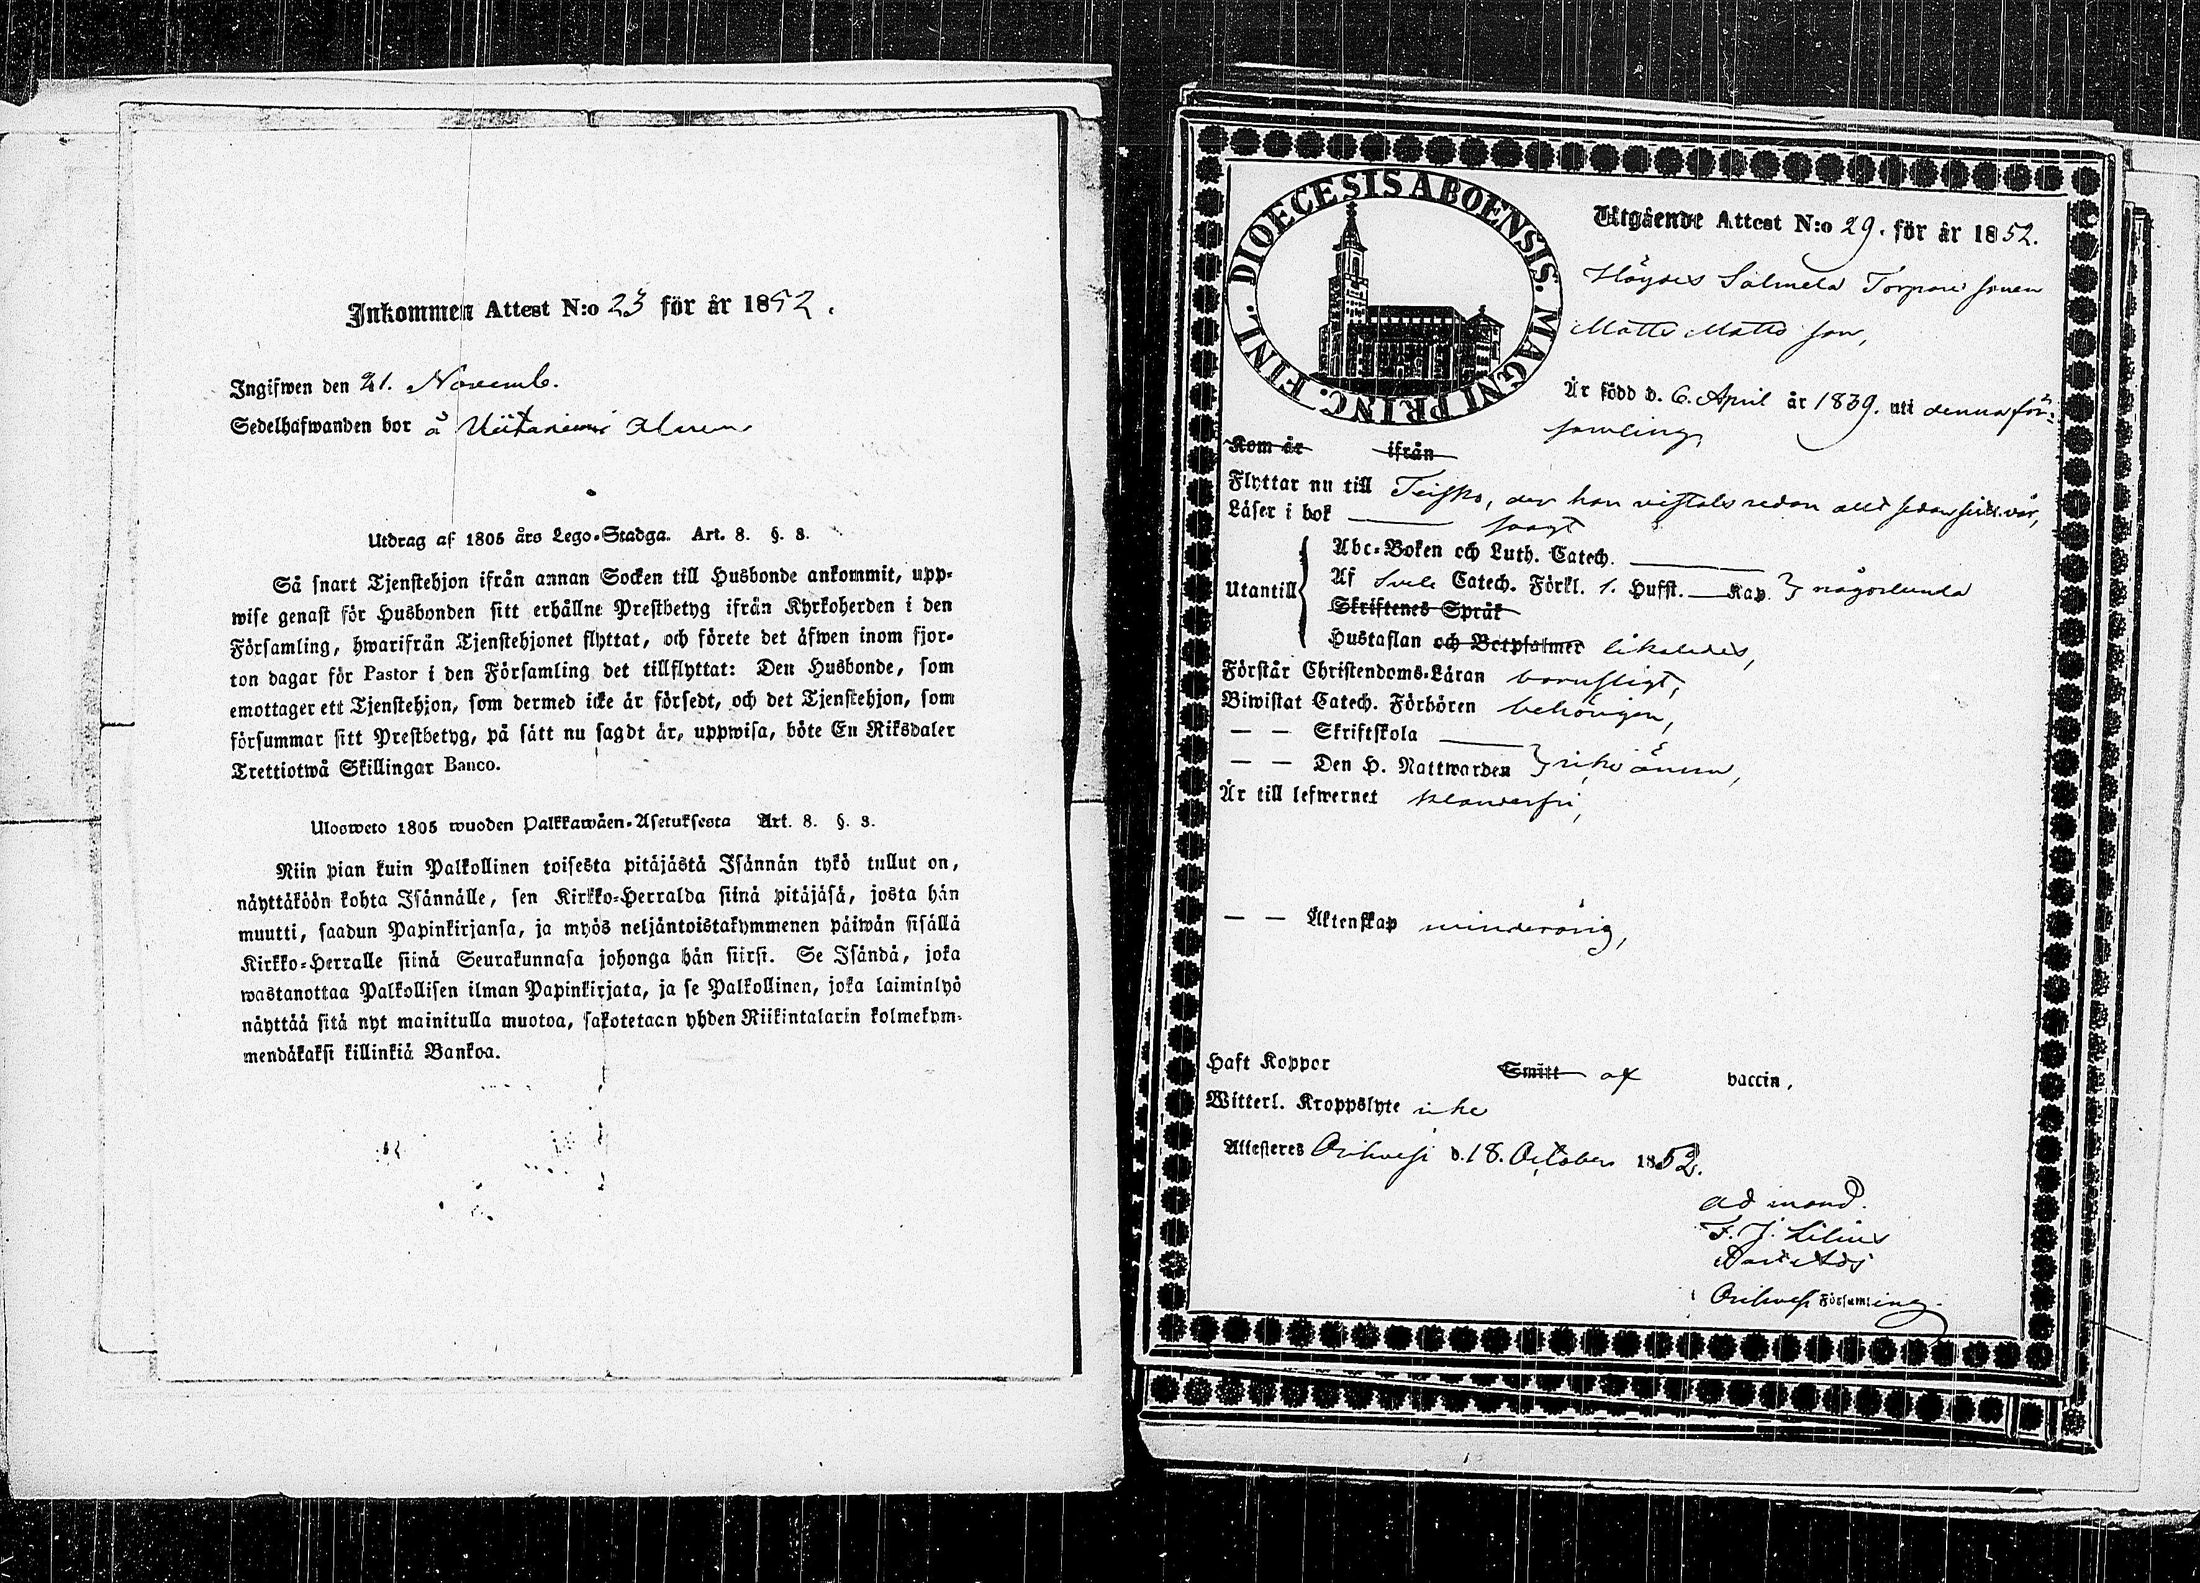 Inkommen Attest N:o 23 för år 1852.
Ingifwen den 21. Novemb.
Sedelhafwanden bor å
Utdrag af 1805 års Lego-Stadga. Art. 8. §. 8.
Så snart Tjenstehjon ifrån annan Socken till Husbonde ankommit, upp-
wise genast för Husbonden sitt erhållne Prestbetyg ifrån Kyrkoherden i den
Församling, hwarifrån Tjenstehjonet flyttat, och förete det äfwen inom fjor-
ton dagar för Pastor i den Församling det tillflyttat: Den Husbonde, som
emottager ett Tjenstehjon, som dermed icke är försedt, och det Tjenstehjon, som
försummar sitt Prestbetyg, på sätt nu sagdt är, uppwisa, böte En Riksdaler
Trettiotwå Skillingar Banco.
Ulosweto 1805 wuoden Palkkawäen-Asetuksesta Art. 8. §. 8.
Niin pian kuin Palkollinen toisesta pitäjästä Isännän tykö tullut on,
näyttäköön kohta Isännälle, sen Kirkko-Herralda siinä pitäjäsä, josta hän
muutti, saadun Papinkirjansa, ja myös neljäntoistakymmenen päiwän sisällä
Kirkko-Herralle siinä Seurakunnasa johonga hän siirsi. Se Isändä, joka
wastanottaa Palkollisen ilman Papinkirjata, ja se Palkollinen, joka laiminlyö
näyttää sitä nyt mainitulla muotoa, sakotetaan yhden Riikintalarin kolmekym-
mendäkaksi killinkiä Bankoa.
DIOECESIS ABOENSIS. MAGNI PRINC. FINL.
Utgående Attest N:o 29. för år 1852.
Höydes Salmela Torpare sonen
Matts Matts son,
Är född d. 6. April år 1839. uti denna för-
samling,
Kom år ifrån
Flyttar nu till Teisko, der han vistats redan allt sedan sistl. vår,
Läser i bok svagt
Abc-Boken och Luth. Catech.
Utantill Af Sveb. Catech. Förkl. 1. Hufst. Kap. någorlunda
Skriftenes Språk
Hustaflan och Botpsalmer likaledes,
Förstår Christendoms-Läran barnsligt,
Biwistat Catech. Förhören behörigen,
— — Skriftskola
— — Den H. Nattwarden icke ännu,
Är till lefwernet klanderfri,
— — Äktenskap minderårig,
Haft Koppor Smitt af vaccin,
Witterl. Kroppslyte icke
Attesteres Orihvesi d. 18. October 1852.
ad mand.
F. J. Lilius
Orihvesi Församling.